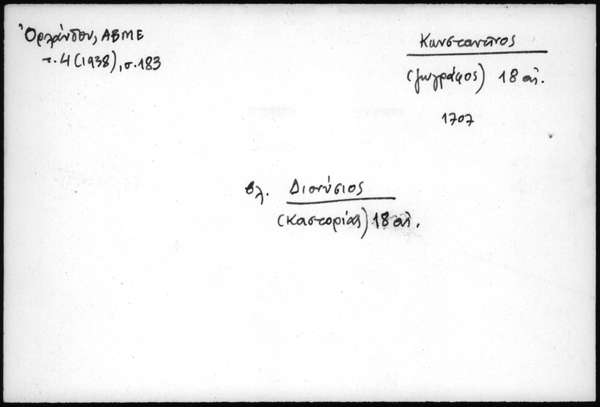 Ὀρλάνδου, ΑΒΜΕ
τ. 4 (1938), σ. 183
Κωνσταντῖνος
(ζωγράφος) 18 αἰ.
1707
βλ. Διονύσιος
(Καστοριᾶς) 18 αἰ.